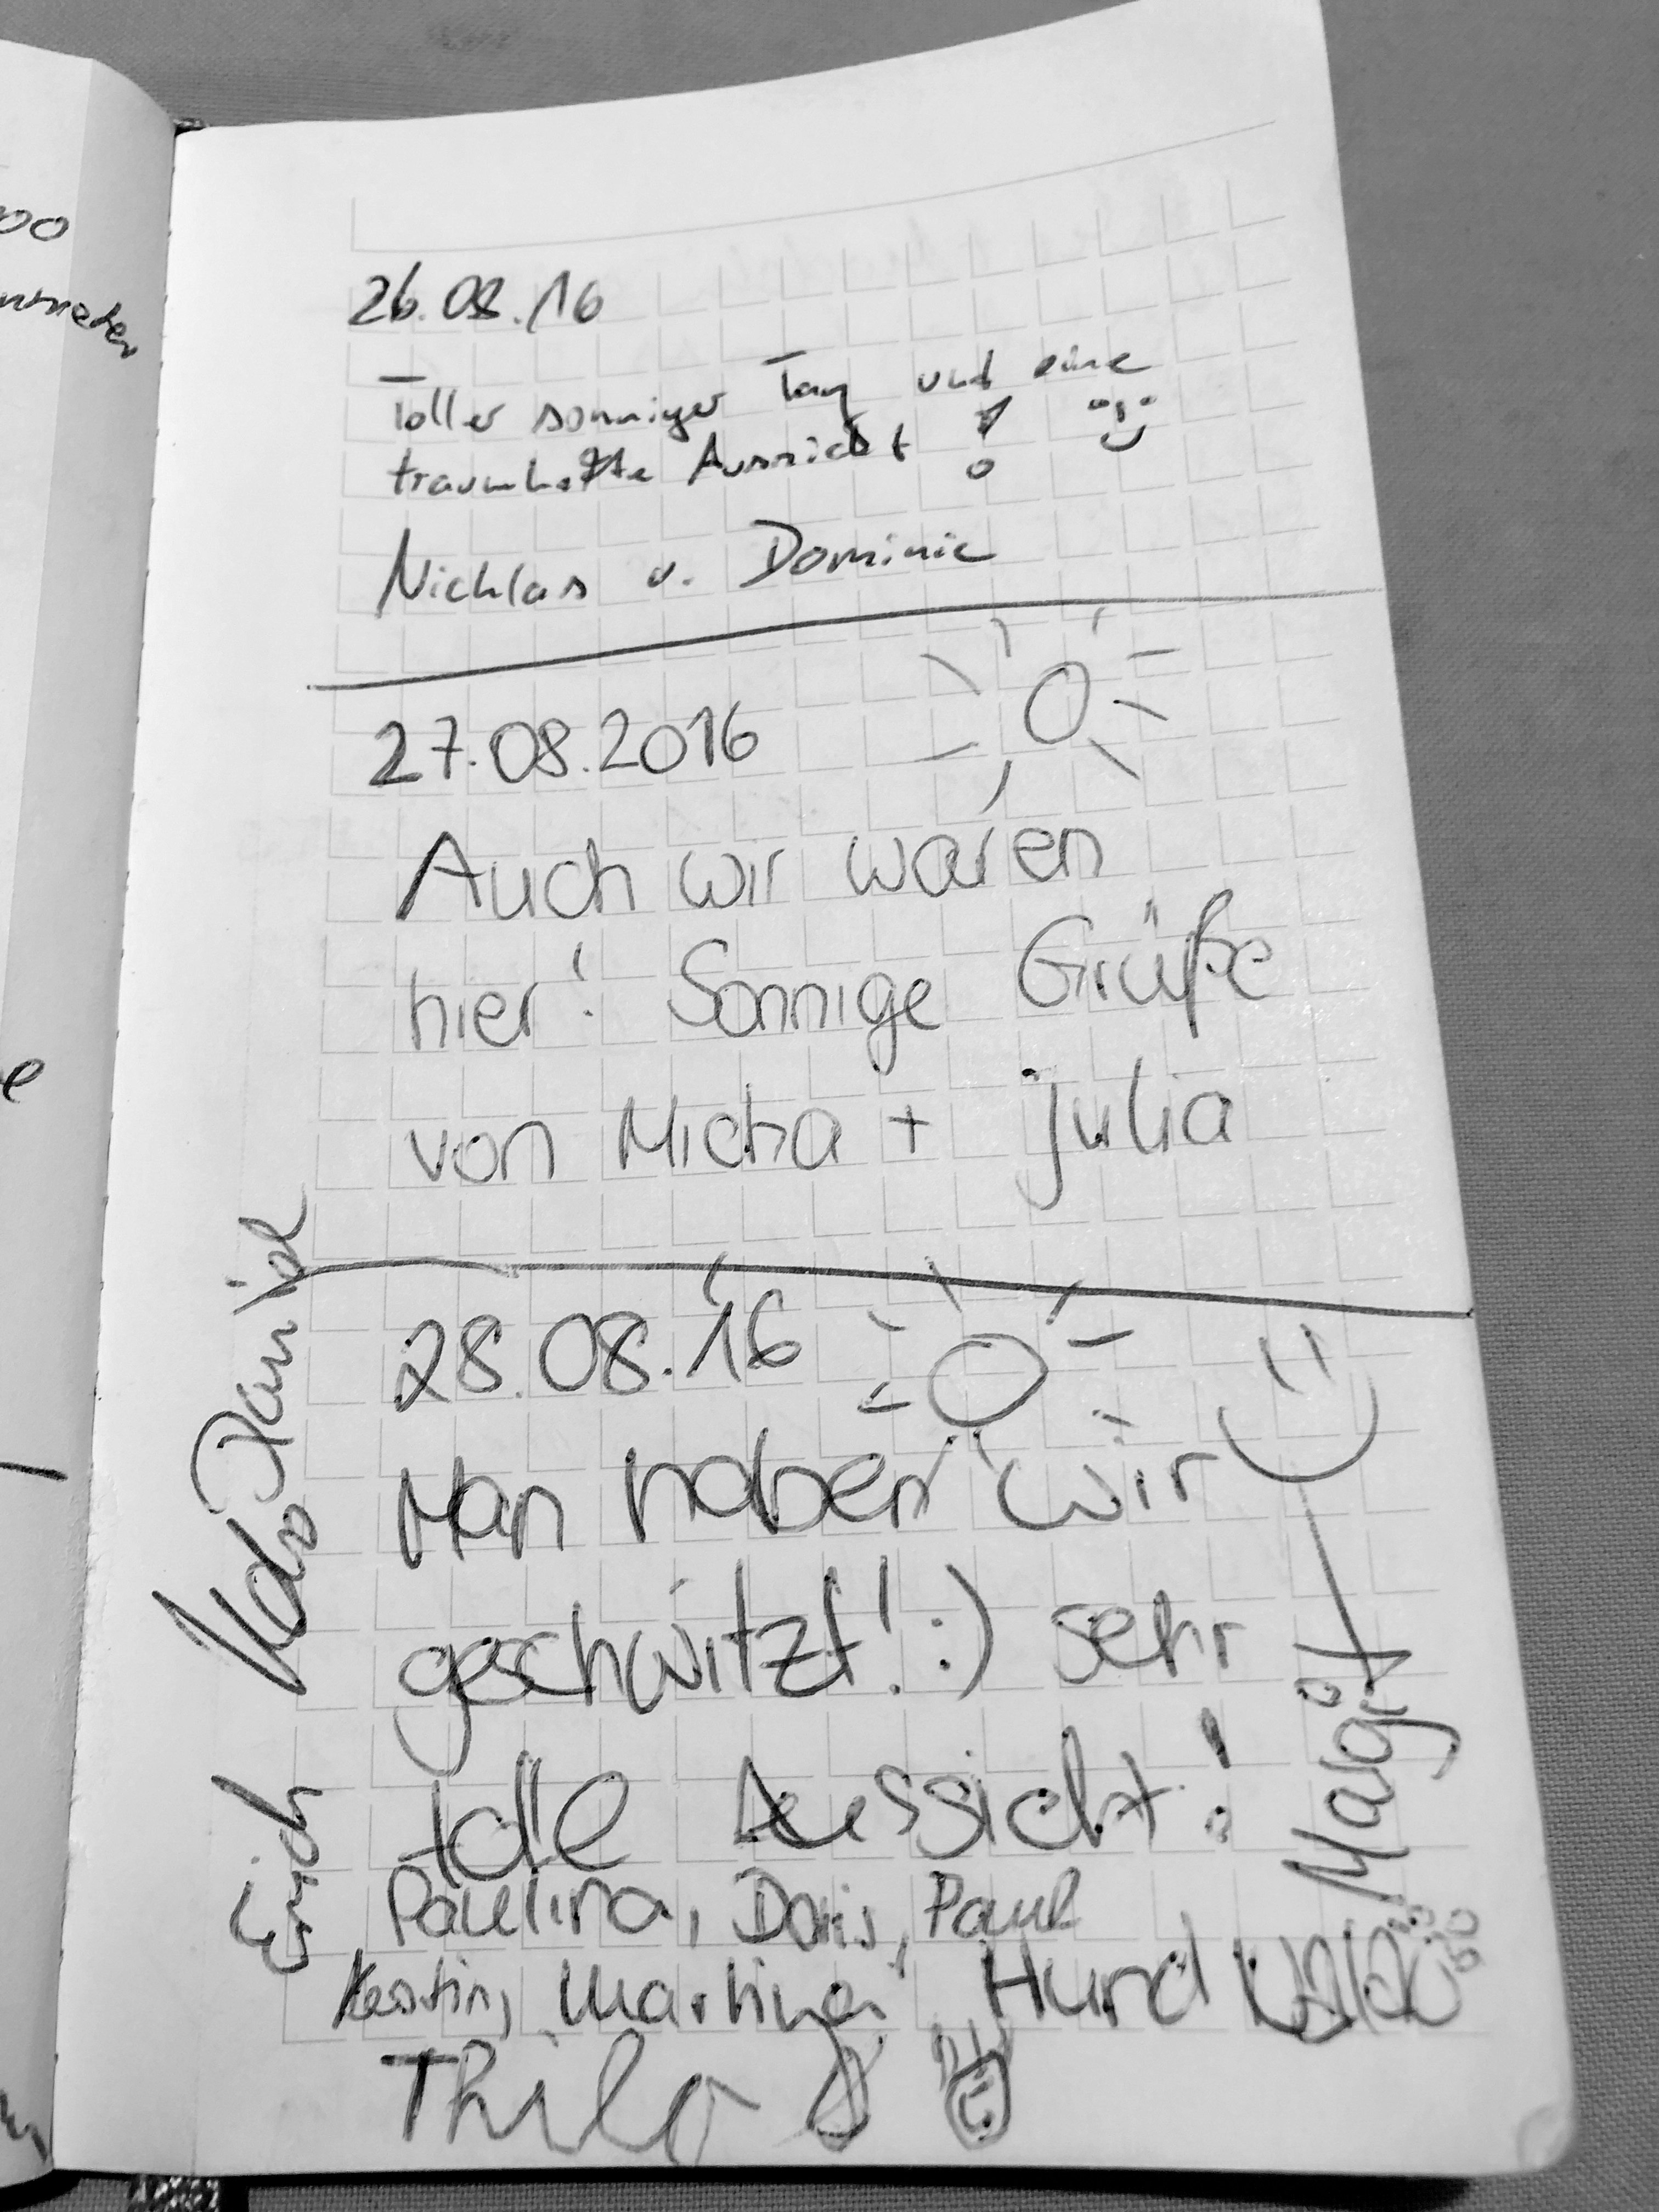 00
26.08.16
Toller sonniger Tag und eine
traumhafte Aussicht !
Nicklas u. Dominic
27.08.2016
Auch wir waren
hier! Sonnige Grüße
von Micha + Julia
28.08.16
Man haben wir
geschwitzt! :) sehr
tolle Aussicht!
Paulina, Doris, Paul
Kerstin, Martina, Hund
Thilo
Erich
Margit